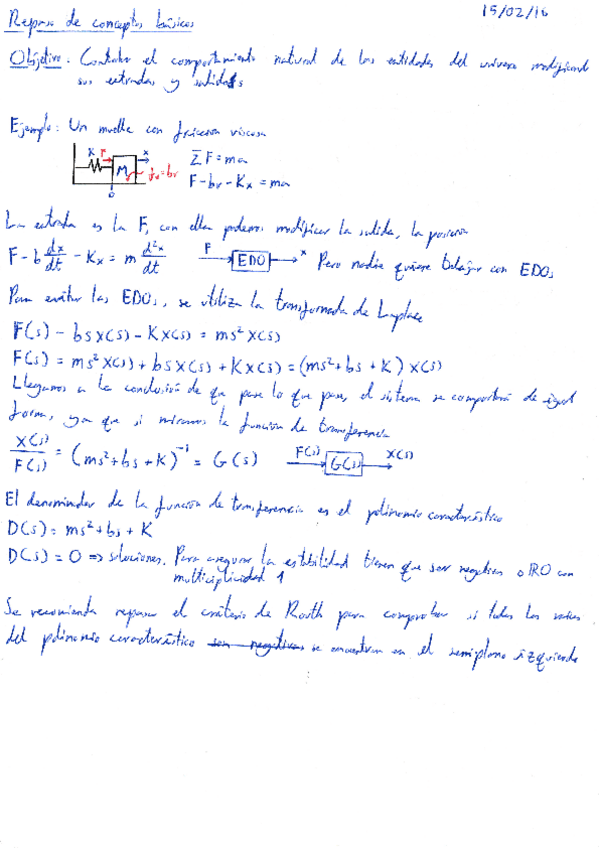 Repaso de conceptos básicos 15/02/16
Objetivo: Controlar el comportamiento natural de las entidades del universo modificando
sus entradas y salidas
Ejemplo: Un muelle con fricción viscosa
K F x ΣF = ma
M fv = bv
F - bv - Kx = ma
0
La entrada es la F, con ella podemos modificar la salida, la posición
F - b dx/dt - Kx = m d²x/dt F EDO x Pero nadie quiere trabajar con EDOs
Para evitar las EDOs, se utiliza la transformada de Laplace
F(s) - bsX(s) - KX(s) = ms²X(s)
F(s) = ms²X(s) + bsX(s) + KX(s) = (ms² + bs + K) X(s)
Llegamos a la conclusión de que pase lo que pase, el sistema se comportará de igual
forma, ya que si miramos la función de transferencia
X(s)/F(s) = (ms² + bs + K)⁻¹ = G(s) F(s) G(s) X(s)
El denominador de la función de transferencia es el polinomio característico
D(s) = ms² + bs + K
D(s) = 0 => soluciones. Para asegurar la estabilidad tienen que ser negativas o IRO con
multiciplicidad 1
Se recomienda repasar el criterio de Routh para comprobar si todas las raíces
del polinomio característico son negativas se encuentran en el semiplano izquierdo